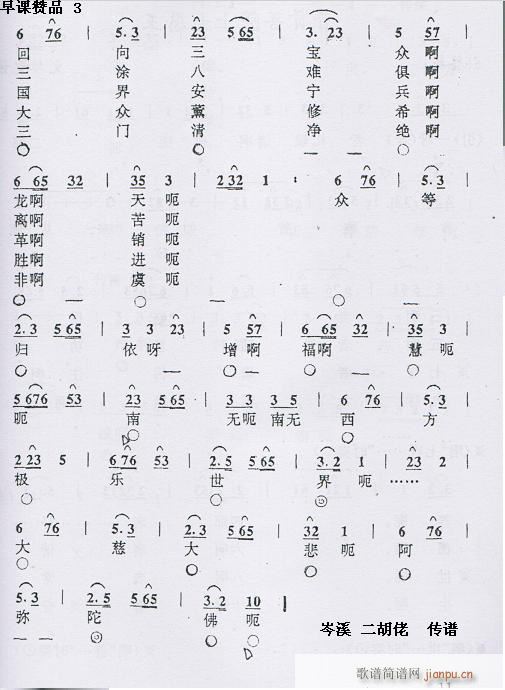 早课赞品 3
6 76 | 5.3 | 23 5 65 | 3.2 3 | 5 57 |
回 向 三 宝 众 啊
三 涂 八 难 俱 啊
国 界 安 宁 兵 啊
大 众 薰 修 希 啊
三 门 清 净 绝 啊
6 65 32 | 35 3 | 2 32 1 : 6 76 | 5.3 |
龙啊 天 呃 众 等
离啊 苦 呃
革啊 销 呃
胜啊 进 呃
非啊 虞 呃
2.3 5 65 | 3 3 23 | 5 57 | 6 65 32 | 35 3 |
归 依呀 增啊 福啊 慧 呃
5 676 53 | 23 5 65 | 3 3 5 5 | 6 76 | 5.3 |
呃 南 无呃 南无 西 方
2 23 5 | 6 76 53 | 2.5 5 65 | 3.2 1 | 23 2 |
极 乐 世 界 呃……
6 76 | 5.3 | 2.3 5 65 | 32 1 | 6 76 |
大 慈 大 悲 呃 阿
5.3 | 2.3 5 65 | 3.2 10 ||
弥 陀 佛 呃
岑溪 二胡佬 传谱
歌谱简谱网
jianpu.cn
11